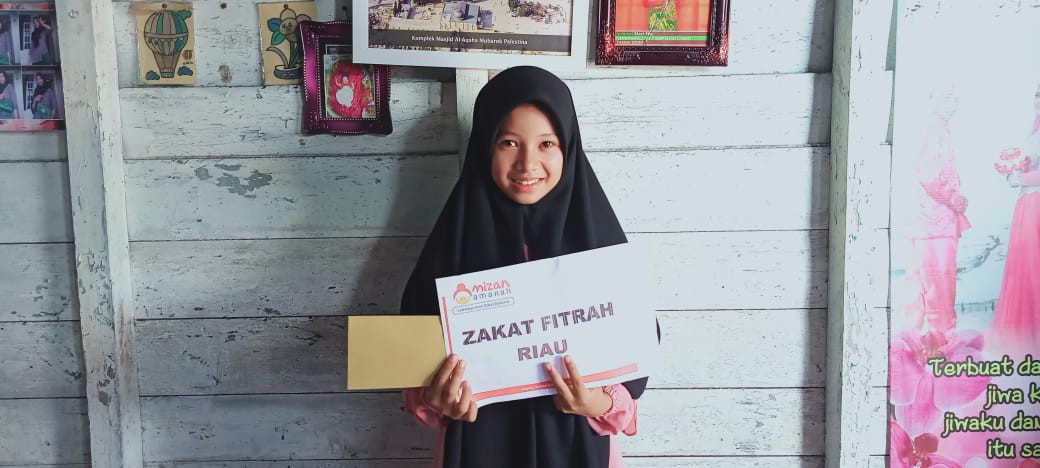 Komplek Masjid Al-Aqsha Mubarak Palestina
mizan
amanah
ZAKAT FITRAH
RIAU
Terbuat da
jiwa k
jiwaku dan
itu sa